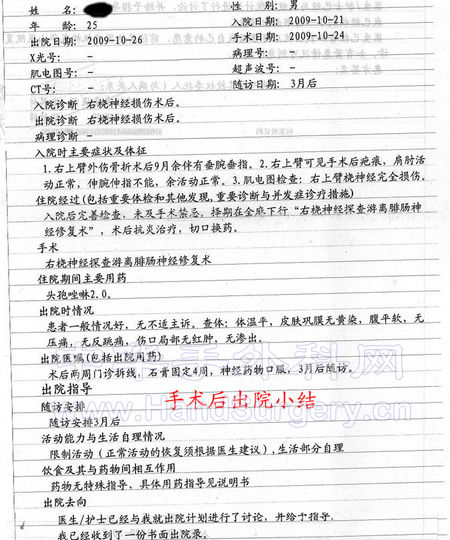 姓 名: 性 别: 男
年 龄: 25 入院日期: 2009-10-21
出院日期: 2009-10-26 手术日期: 2009-10-24
X光号: - 病理号: -
肌电图号: - 超声波号: -
CT号: - 随访日期: 3月后
入院诊断 右桡神经损伤术后。
出院诊断 右桡神经损伤术后。
病理诊断 -
入院时主要症状及体征
1.右上臂外伤骨折术后9月余伴有垂腕垂指。2.右上臂可见手术后疤痕,肩肘活
动正常,伸腕伸指不能,余活动正常。3.肌电图检查:右上臂桡神经完全损伤。
住院经过(包括重要体检和其他发现,重要诊断与并发症诊疗措施)
入院后完善检查,未及手术禁忌,择期在全麻下行“右桡神经探查游离腓肠神
经修复术”,术后抗炎治疗,切口换药。
手术
右桡神经探查游离腓肠神经修复术
住院期间主要用药
头孢唑啉2.0。
出院时情况
患者一般情况好,无不适主诉。查体:体温平,皮肤巩膜无黄染,腹平软,无
压痛,无反跳痛,伤口局部无红肿,无渗出。
出院医嘱(包括出院用药)
术后两周门诊拆线,石膏固定4周,神经药物口服,3月后随访。
出院指导
手外科网
手术后出院小结
www.HandSurgery.cn
随访安排
随访安排3月后
活动能力与生活自理情况
限制活动(正常活动的恢复须根据医生建议),生活部分自理
饮食及其与药物间相互作用
药物无特殊指导、具体用药指导见说明书
出院去向
医生/护士已经与我就出院计划进行了讨论,并给予指导,
我已经收到了一份书面出院录。